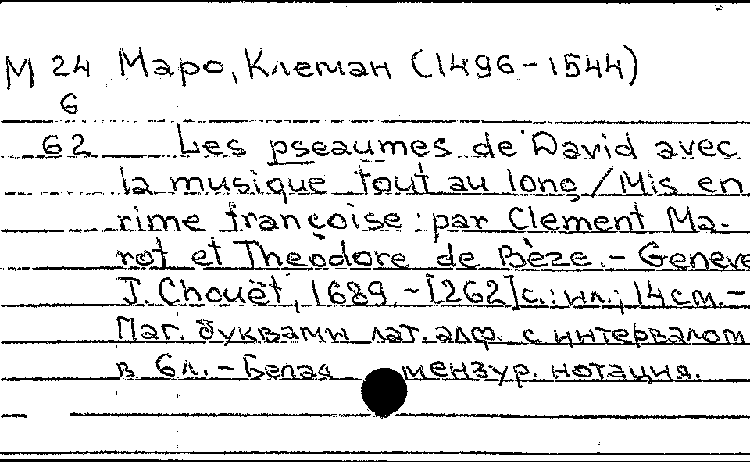 М 24 Маро, Клеман (1496-1544)
6
62 Les pseaumes de David avec
la musique tout au long / Mis en
rime françoise : par Clement Ma-
rot et Theodore de Bèze. - Geneve
J. Chouët, 1689. - [262] с.: ил.; 14 см. -
Паг. буквами лат. алф. с интервалом
в 6 л. - Белая мензур. нотация.